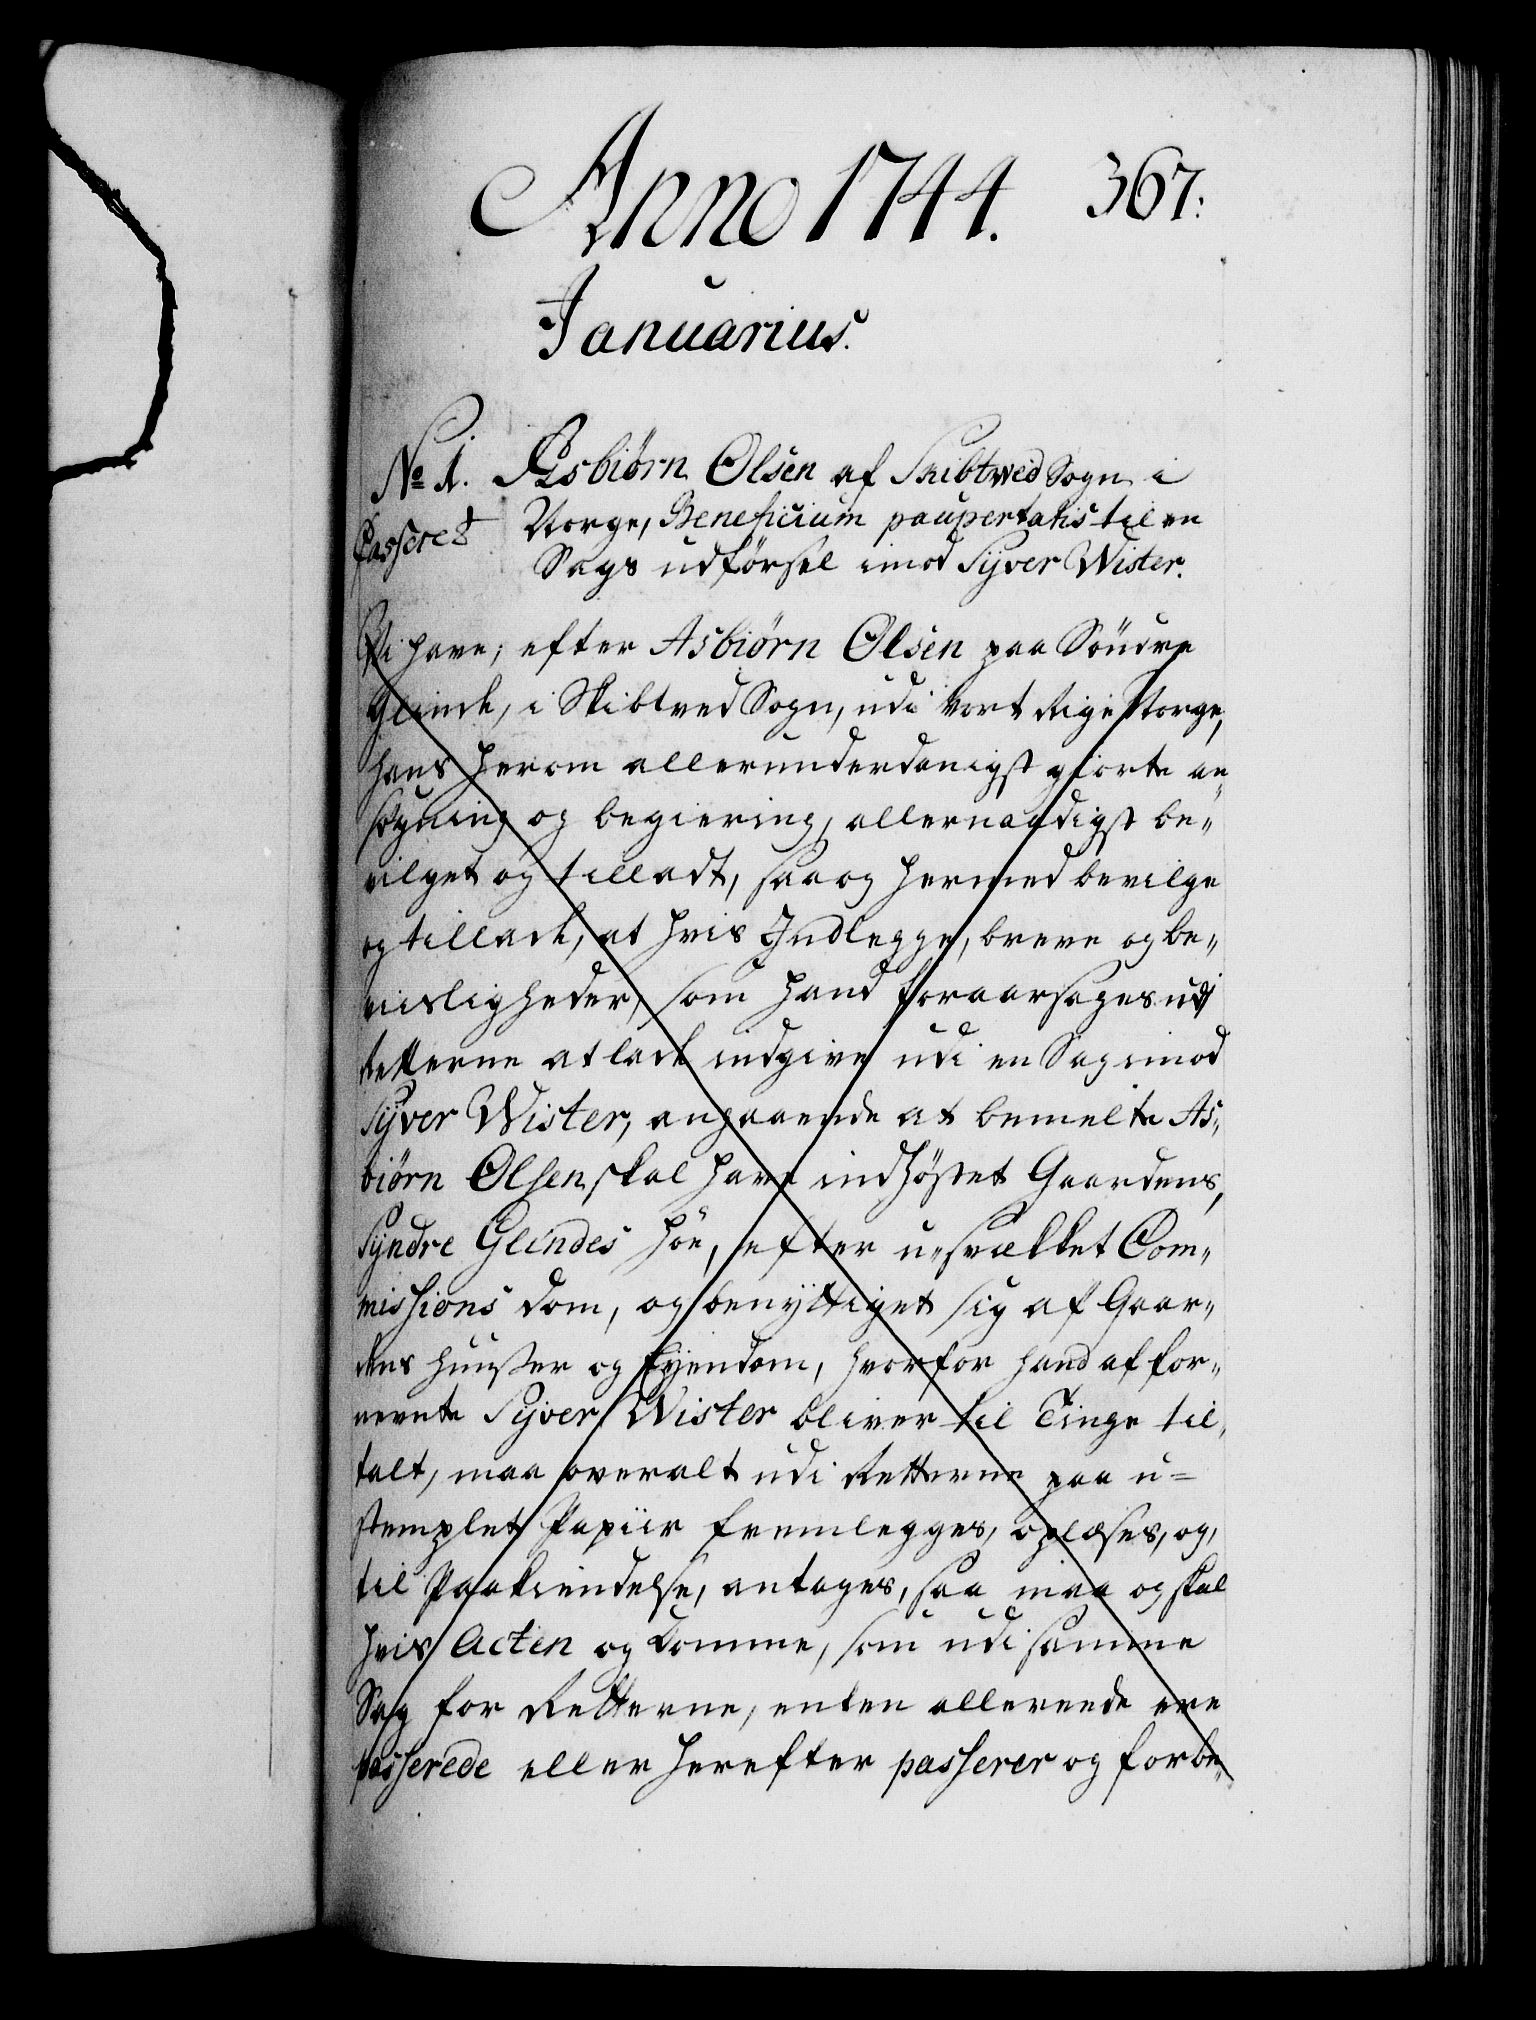 Anno 1744. 367:
Januarius.
No 1. Asbiörn Olsen af Skibtved Sogn i
Passeret
Norge, Beneficium paupertatis til en
Sags udførsel imod Syver Wister.
Vi have, efter Asbiörn Olsen paa Söndre
Glinde, i Skibtved Sogn, udi vort Rige Norge,
hans herom allerunderdanigst giorte an„
søgning og begiering, allernaadigst be„
vilget og tilladt, saa og hermed bevilge
og tillade, at hvis Indlegge, breve og be„
viisligheder, som hand foraarsages udi
Retterne at lade indgive udi en Sag imod
Syver Wister, angaaende at bemelte As„
biörn Olsen skal have indhöstet Gaardens,
Syndre Glindes höe, efter u„svækket Com„
missions dom, og benyttiget sig af Gaar„
dens huuser og Eyendom, hvorfor hand af for„
nevnte Syver Wister bliver til Tinge til„
talt, maa overalt udi Retterne paa u=
stemplet Papiir fremlegges, oplæses, og,
til Paakiendelse, antages, saa maa og skal
hvis Acten og Domme, som udi samme
Sag for Retterne, enten allereede ere
passerede eller herefter passerer og forbe„